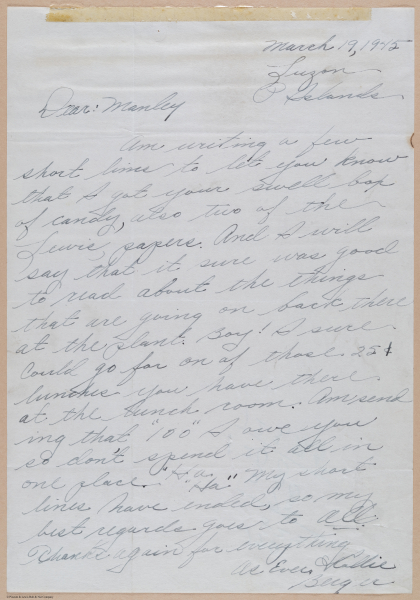 March 19, 1945
Luzon
P Islands
Dear: Manley
Am writing a few
short lines to let you know
that I got your swell box
of candy, also two of the
Lewis, papers. And I will
say that it sure was good
to read about the things
that are going on back there
at the plant. Boy! I sure
could go for on of those 25¢
lunches you have there
at the lunch room. Am send
ing that "100" I owe you
so don't spend it all in
one place. "Ha
Ha." My short
lines have ended, so my
best regards goes to all.
Thanks again for everything
As Ever